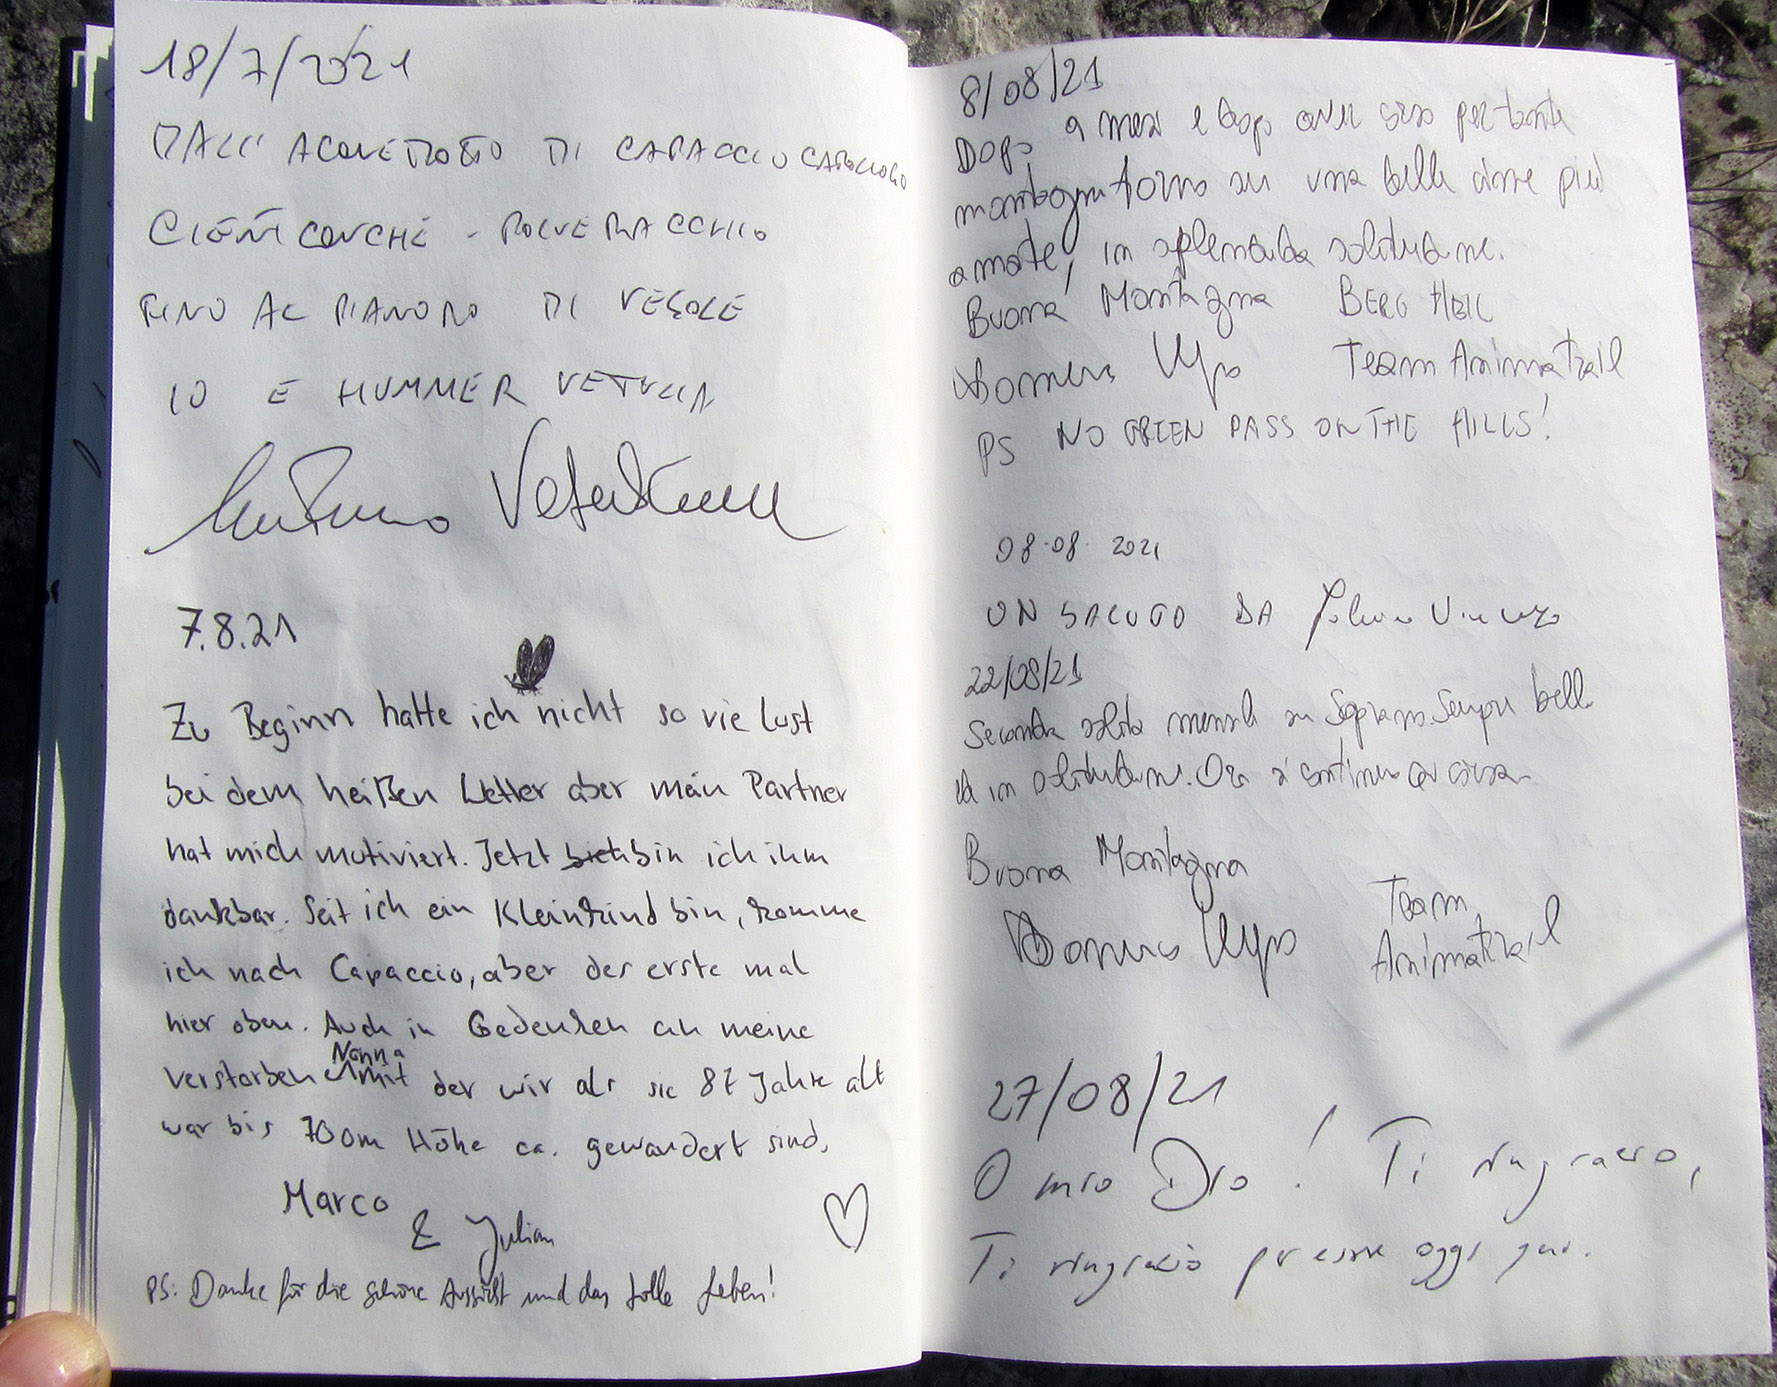 18/7/2021
DALL' ACQUEDOTTO DI CAPACCIO CAPOLUOGO
CIENTCONCHE - POLVERACCHIO
FINO AL PIANORO DI VESOLE
IO E HUMMER
7.8.21
Zu Beginn hatte ich nicht so vie Lust
bei dem heißen Wetter aber mein Partner
hat mich motiviert. Jetzt bin ich ihm
dankbar. Seit ich ein Kleinkind bin, komme
ich nach Capaccio, aber des erste mal
hier oben. Auch in Gedenken an meine
verstorbene Nonna mit der wir als sie 87 Jahre alt
war bis 700m Höhe ca. gewandert sind,
Marco
& Julian
PS: Danke für die schöne Aussicht und das tolle Leben!
8/08/21
Dopo 9 mesi e dopo aver corso per tante
montagne torno su una delle cime più
amate, in splendida solitudine.
Buona Montagna BERG HEIL
Team Animatrail
PS NO GREEN PASS ON THE HILLS!
08.08.2021
UN SALUTO DA
22/08/21
Seconda salita mensile su Soprano. Sempre bello
ed in solitudine. Ora si continua
Buona Montagna
Team
Animatrail
27/08/21
O mio Dio! Ti ringrazio,
Ti ringrazio per essere oggi qui.